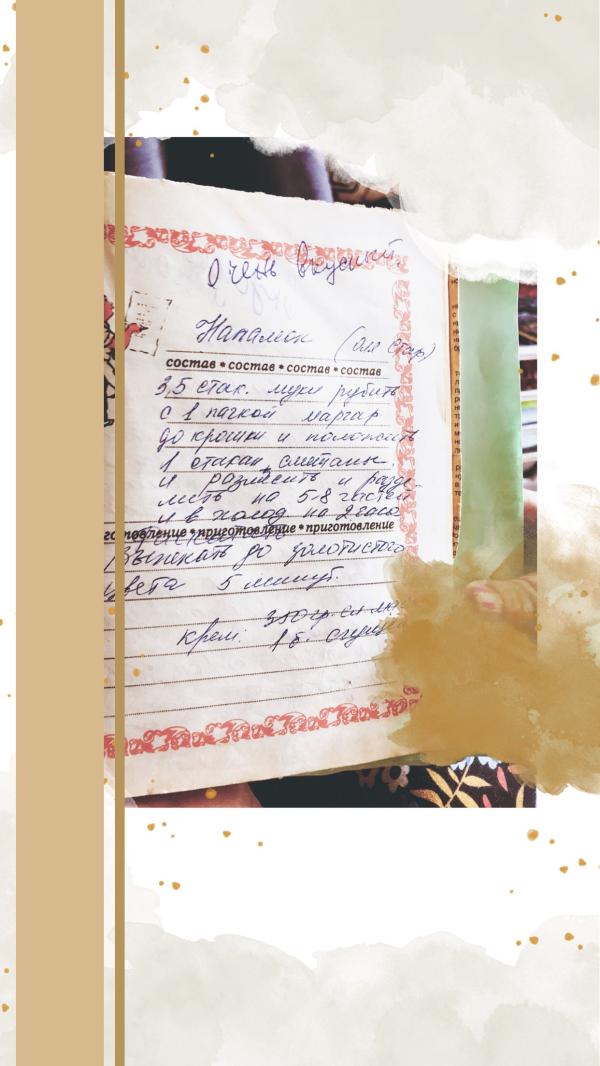 Очень вкусный.
Наполеон
состав • состав • состав • состав
3,5 стак. муки рубить
с 1 пачкой маргар
до крошки и положить
1 стакан сметаны.
и размесить и разде-
лить на 5-8 частей
и в холод на 2 часа
приготовление • приготовление
Выпекать до золотистого
цвета 5 минут.
крем: 350гр. сл. м.
1 б. сгущ